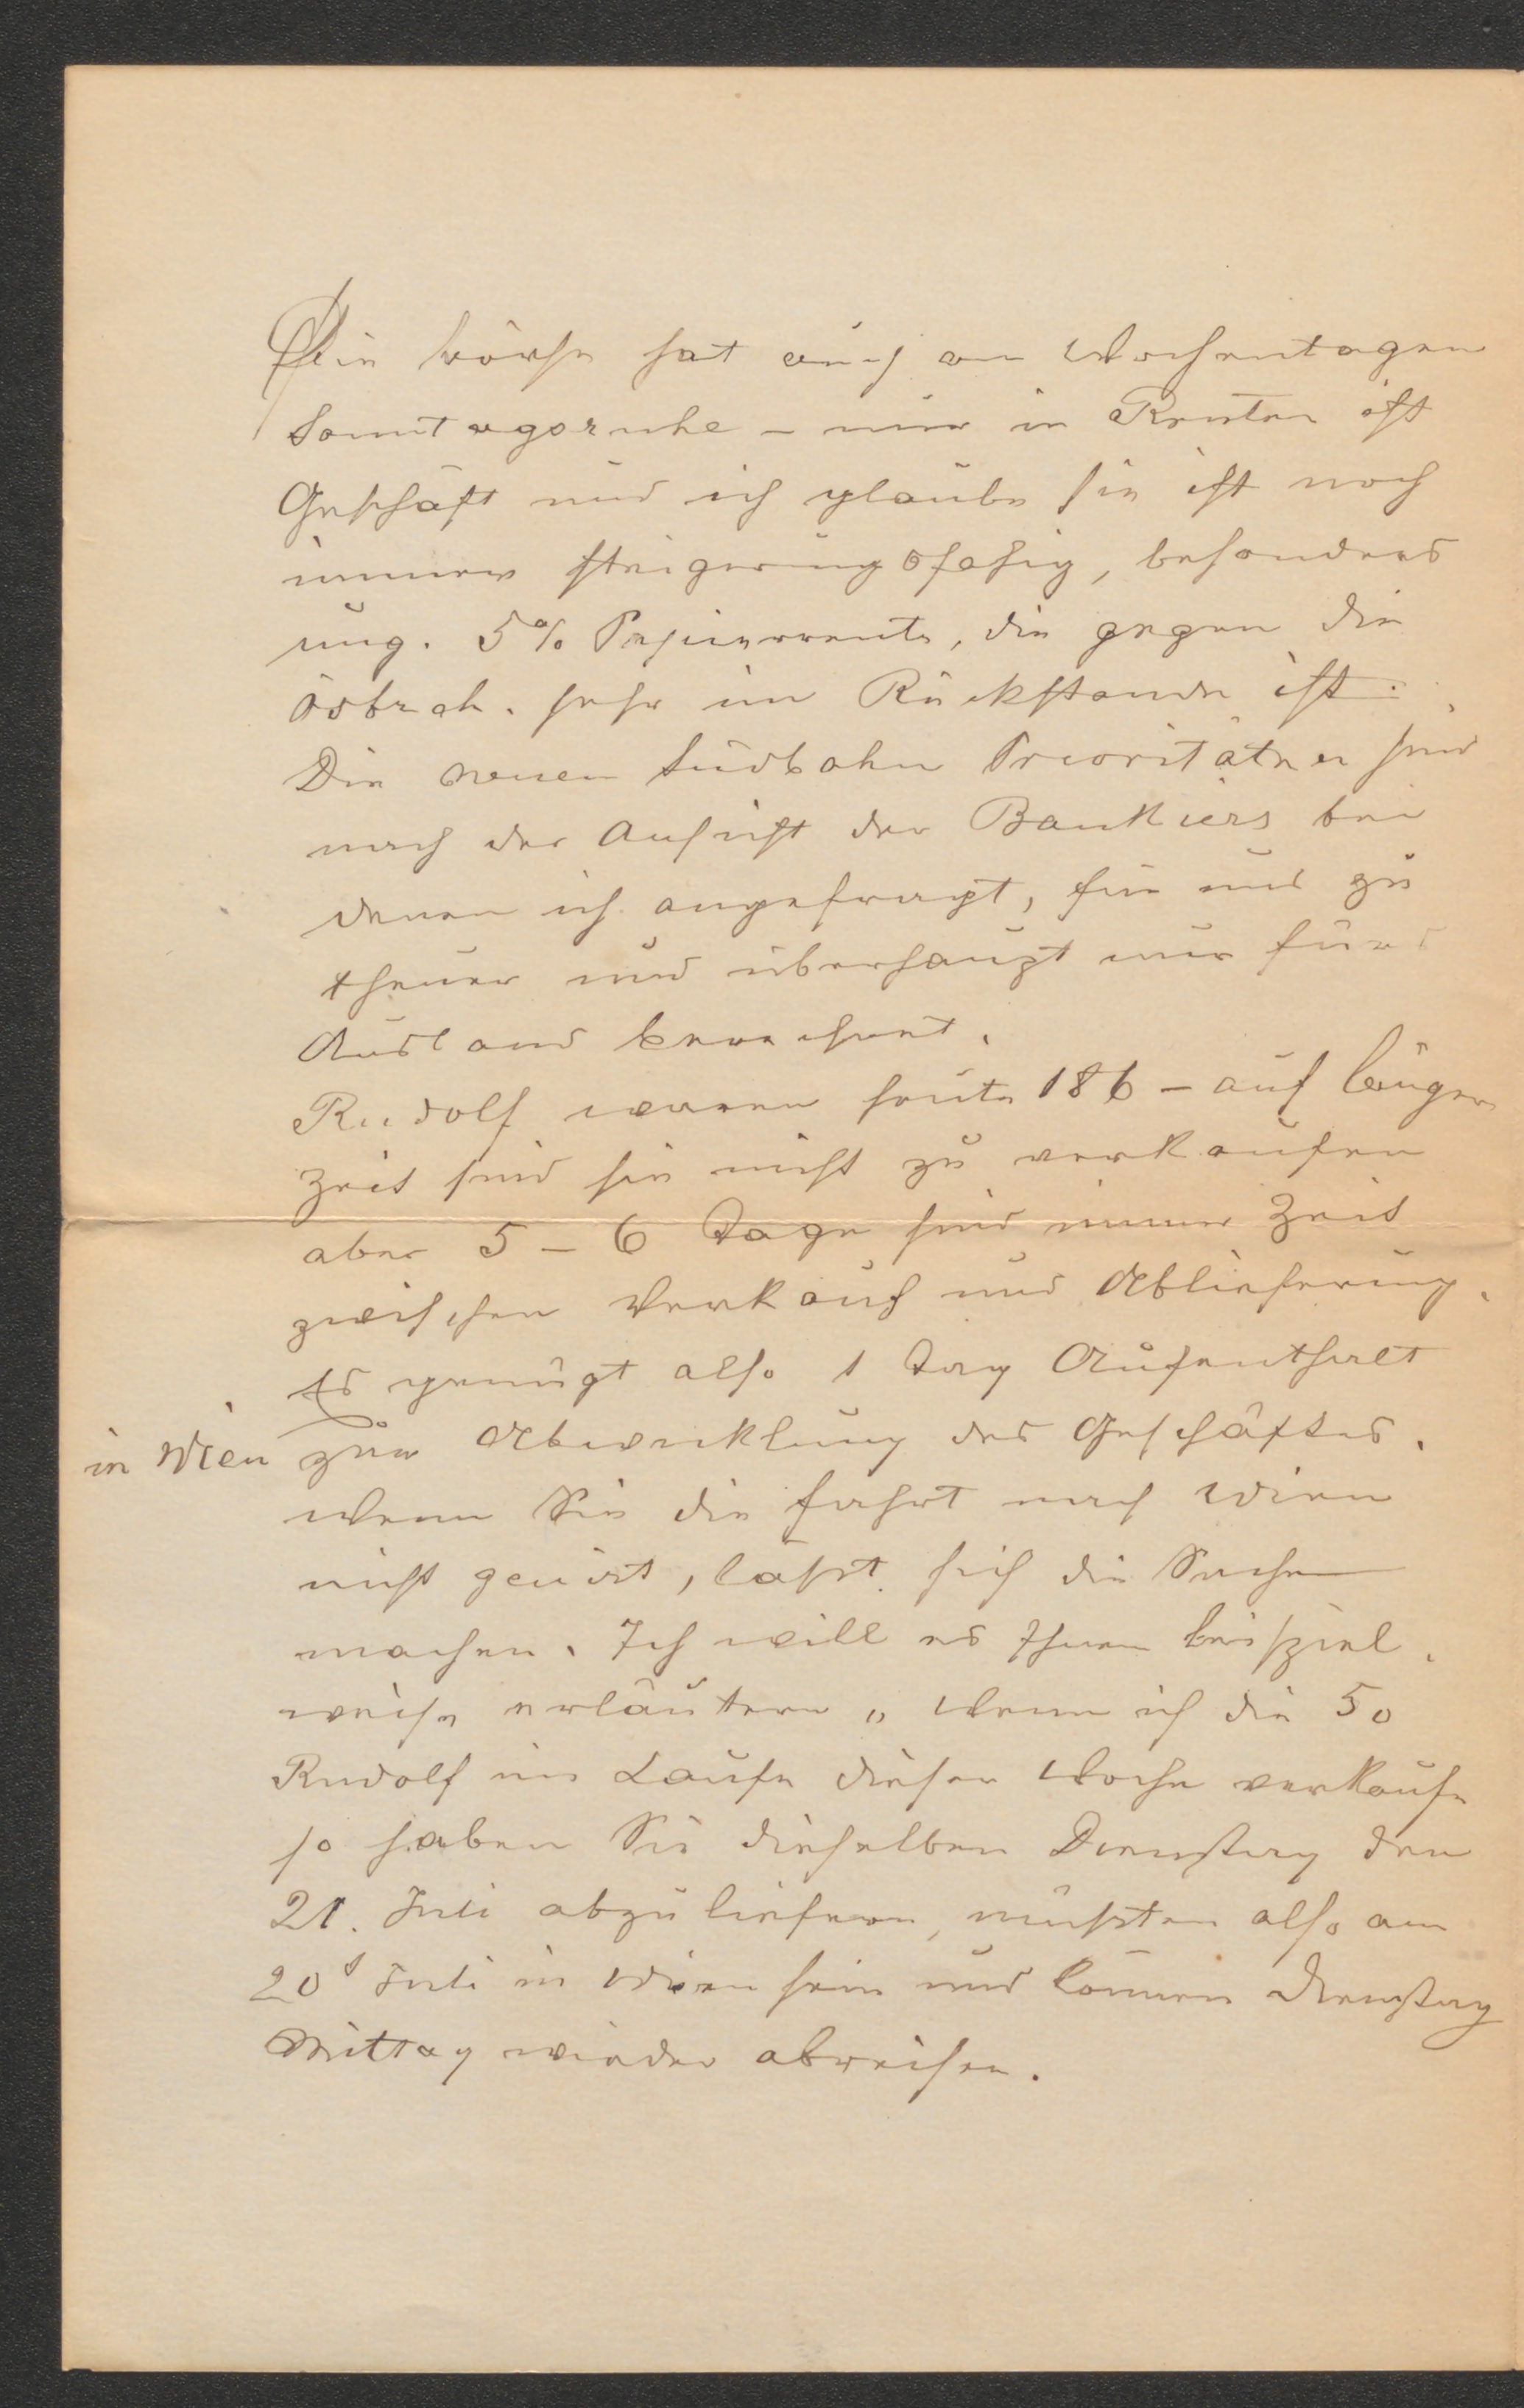 Die Börse hat auch an Wochentagen
Sonntagsruhe – nur in Renten ist
Geschäft und ich glaube sie ist noch
immer steigerungsfähig, besonders
ung. 5% Papierrente, die gegen die
östrch. sehr im Rückstande ist.
Die neuen Südbahn Prioritäten sind
nach der Ansicht der Bankiers bei
denen ich angefragt, für uns zu
theuer und überhaupt nur fürs
Ausland berechnet.
Rudolf waren heute 186 – auf länger
Zeit sind sie nicht zu verkaufen
aber 5 – 6 Tage sind immer Zeit
zwischen Verkauf und Ablieferung.
Es genügt also 1 Tag Aufenthalt
in Wien zur Abwicklung des Geschäftes.
Wenn Sie die Fahrt nach Wien
nicht genirt, läßt sich die Sache
machen. Ich will es Ihnen beispiel.
weise erläutern „ Wenn ich die 50
Rudolf im Laufe dieser Woche verkaufe
so haben Sie dieselben Dienstag den
21. Juli abzuliefern, müßten also am
20t Juli in Wien sein und können Dienstag
Mittag wieder abreisen.